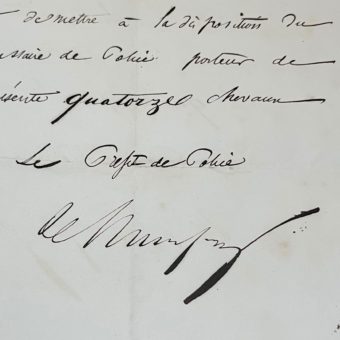 de mettre à la disposition du
ssaire de Police porteur de
ésente quatorze chevaux
Le Préft de Police